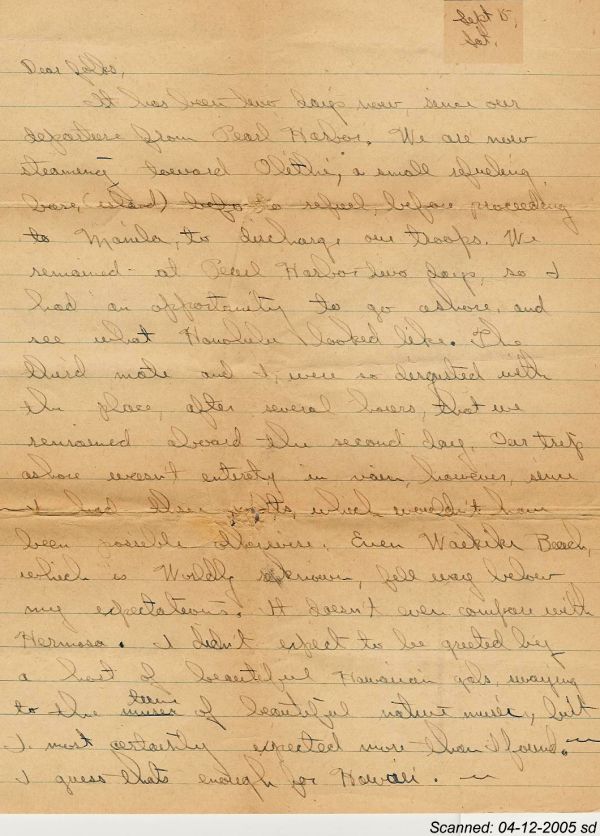 Sept 15,
Sat.
Dear Folks,
It has been two days now, since our
departure from Pearl Harbor. We are now
steaming toward Olithi, a small refueling
base, (island) befo to refuel, before proceeding
to Manila, to discharge our troops. We
remained at Pearl Harbor two days, so I
had an opportunity to go ashore, and
see what Honolulu looked like. The
third mate and I, were so disgusted with
the place, after several hours, that we
remained aboard the second day. Our trip
ashore wasn't entirely in vain, however, since
I had three which wouldn't have
been possible otherwise. Even Waikiki Beach,
which is Worldly known, fell way below
my expectations. It doesn't even compare with
Hermosa. I didn't expect to be greeted by
a host of beautiful Hawaiian gals, swaying
to the tune of beautiful native music, but
I most certainly expected more than I found.
I guess thats enough for Hawaii.
Scanned: 04-12-2005 sd